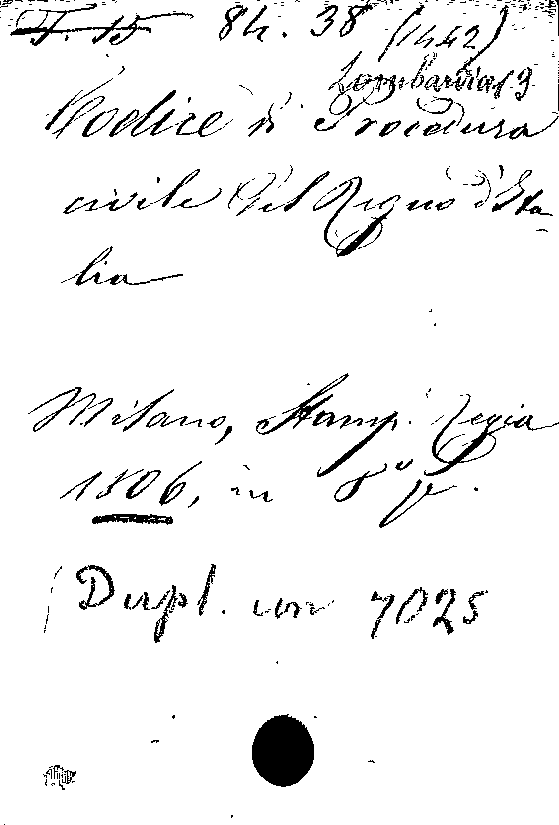 T. 15 8h. 38 (1442)
Lombardia 9
Codice di Procedura
civile del Regno d'Ita-
lia
Milano, Stamp. Regia
1806, in 8°
Dupl. von 7025